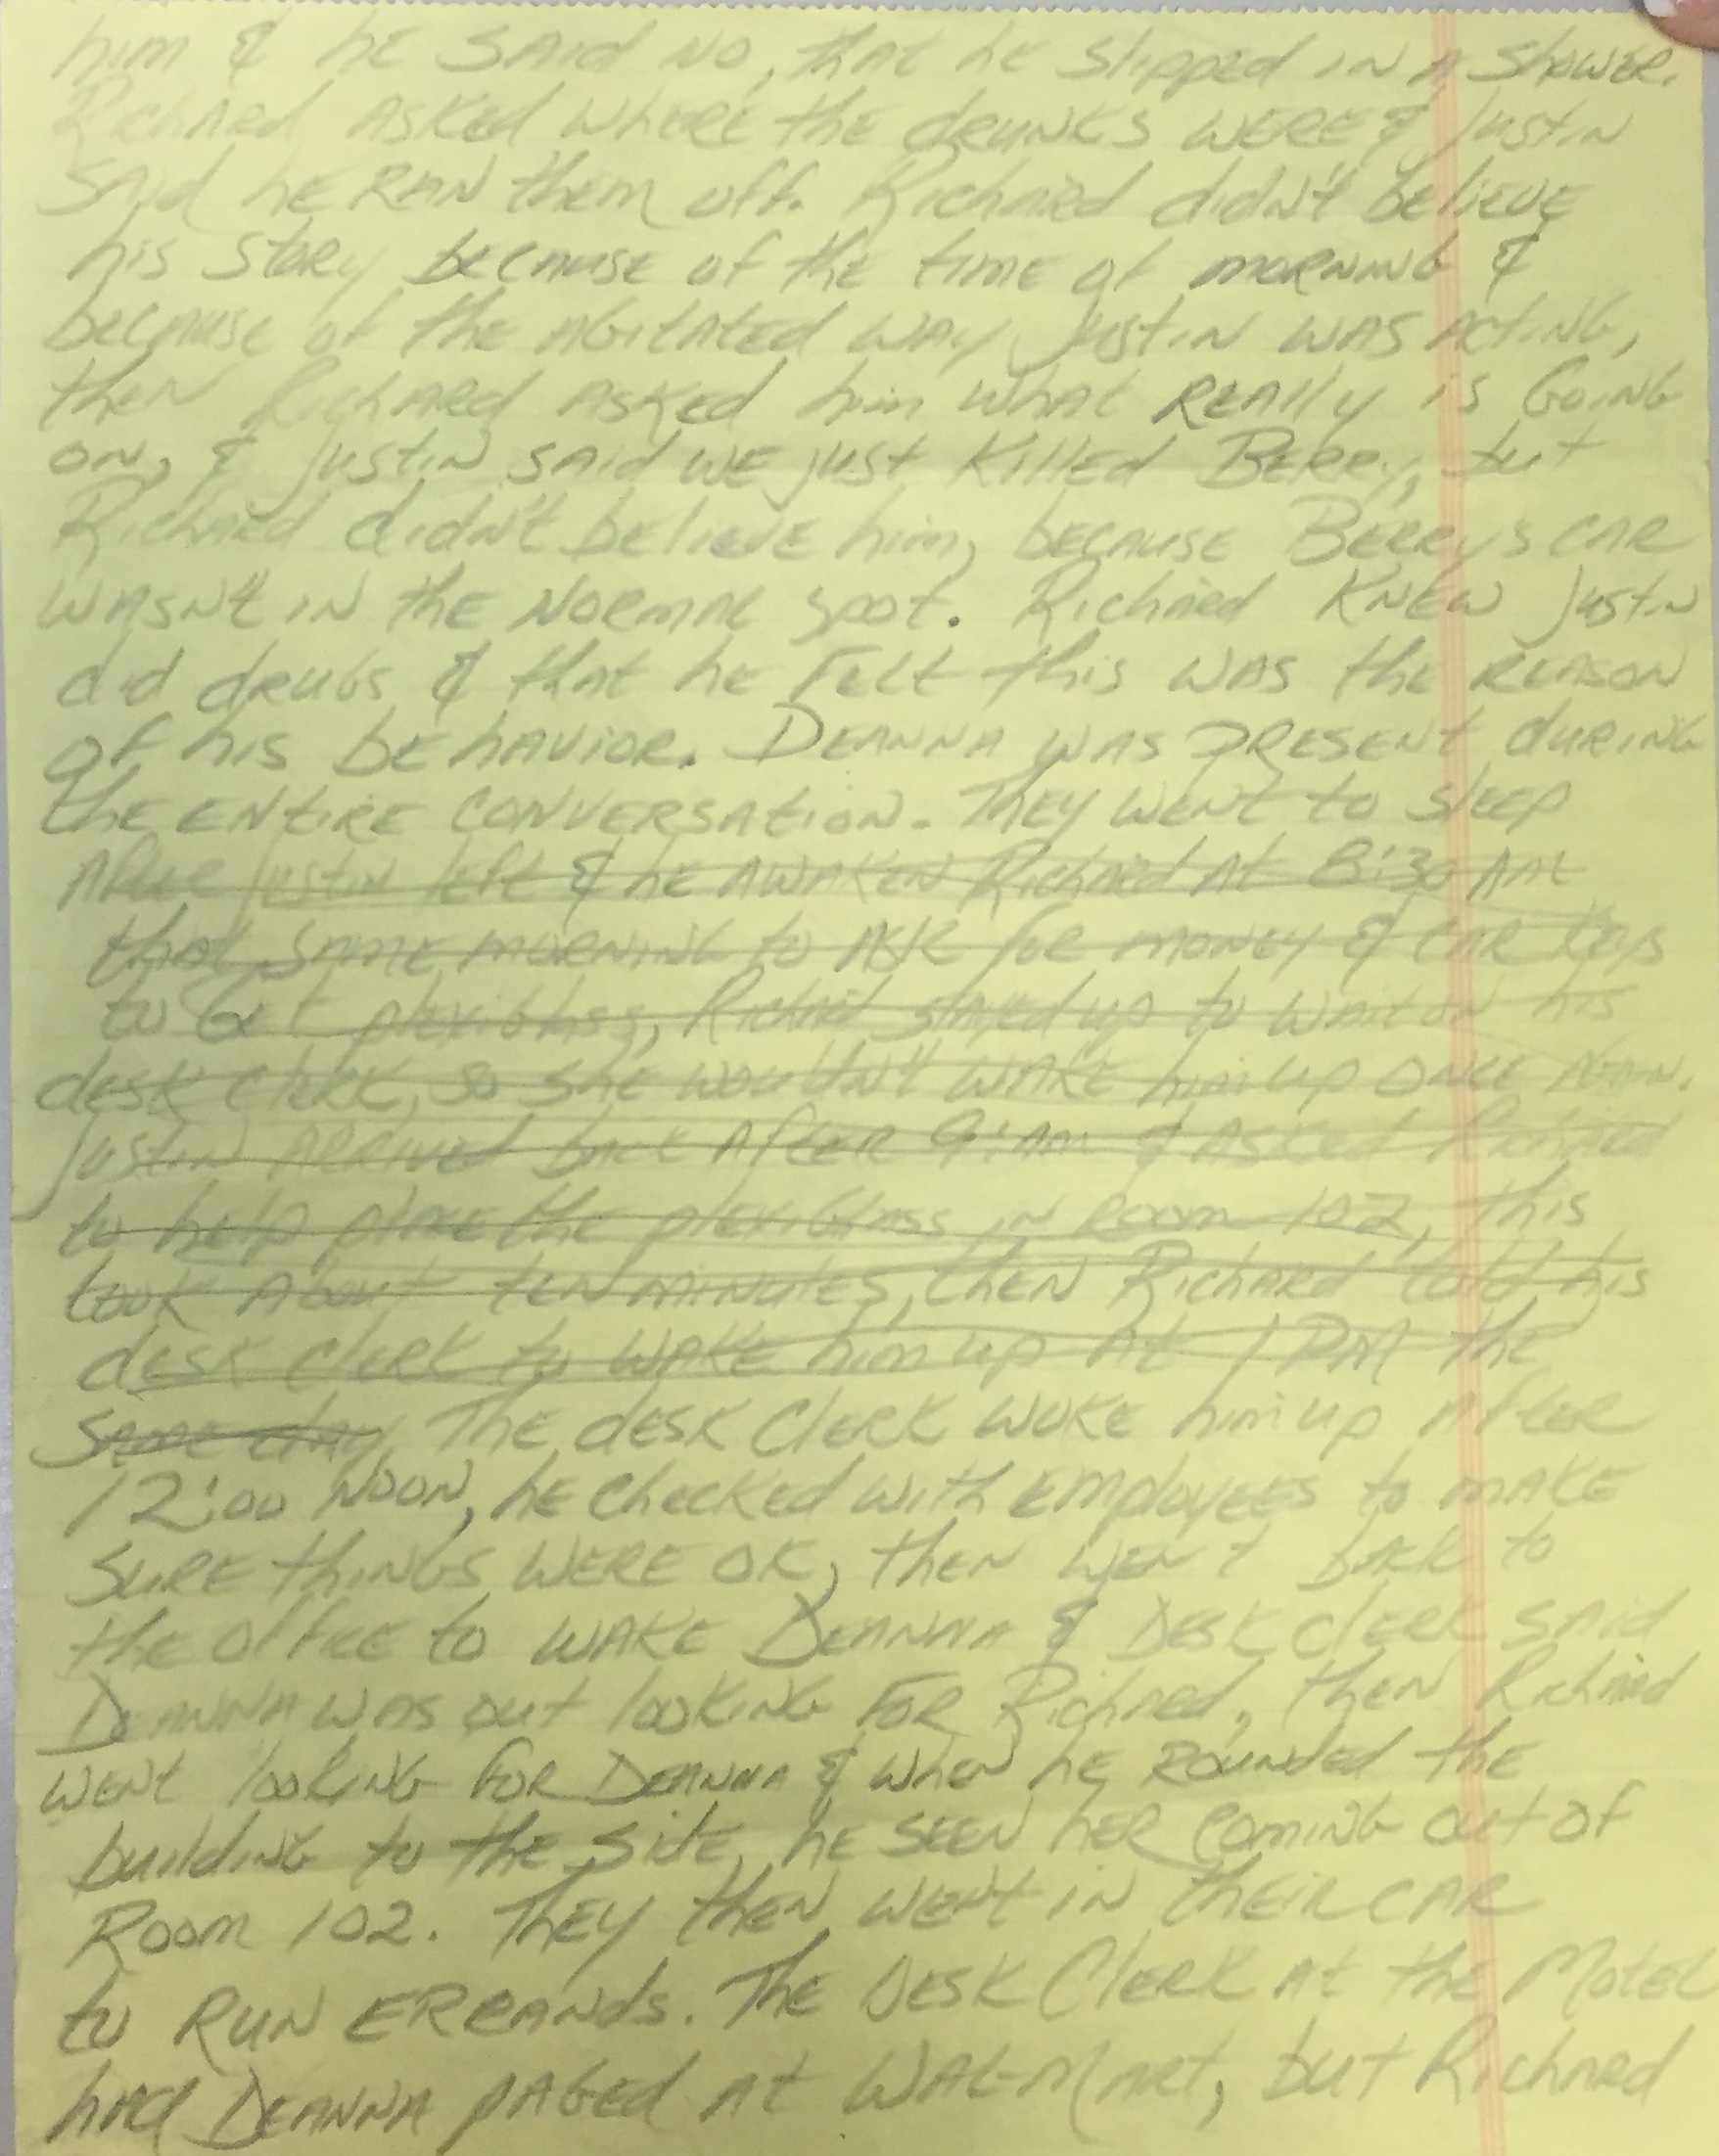 him & he said no, that he slipped in a shower.
Richard asked where the drunks were & Justin
said he ran them off. Richard didn't believe
his story because of the time of morning &
because of the agitated way Justin was acting,
then Richard asked him what really is going
on, & Justin said we just killed Berry, but
Richard didn't believe him, because Berry's car
wasn't in the normal spot. Richard knew Justin
did drugs & that he felt this was the reason
of his behavior. Deanna was present during
the entire conversation. They went to sleep
After Justin left & he awaken Richard at 8:30 AM
that same morning to ask for money & car keys
to get plexiglass, Richard stayed up to wait on his
desk clerk, so she wouldn't wake him up once again.
Justin arrived back after 9:am & asked Richard
to help place the plexiglass in Room 102, this
took about ten minutes, then Richard told his
desk clerk to wake him up at 1 PM the
same day The desk clerk woke him up after
12:00 Noon, he checked with employees to make
sure things were ok, then went back to
the office to wake Deanna & Desk clerk said
Deanna was out looking for Richard, then Richard
went looking for Deanna & when he rounded the
building to the site, he seen her coming out of
Room 102. They then went in their car
to run errands. The Desk Clerk at the Motel
had Deanna paged at Wal-Mart, but Richard